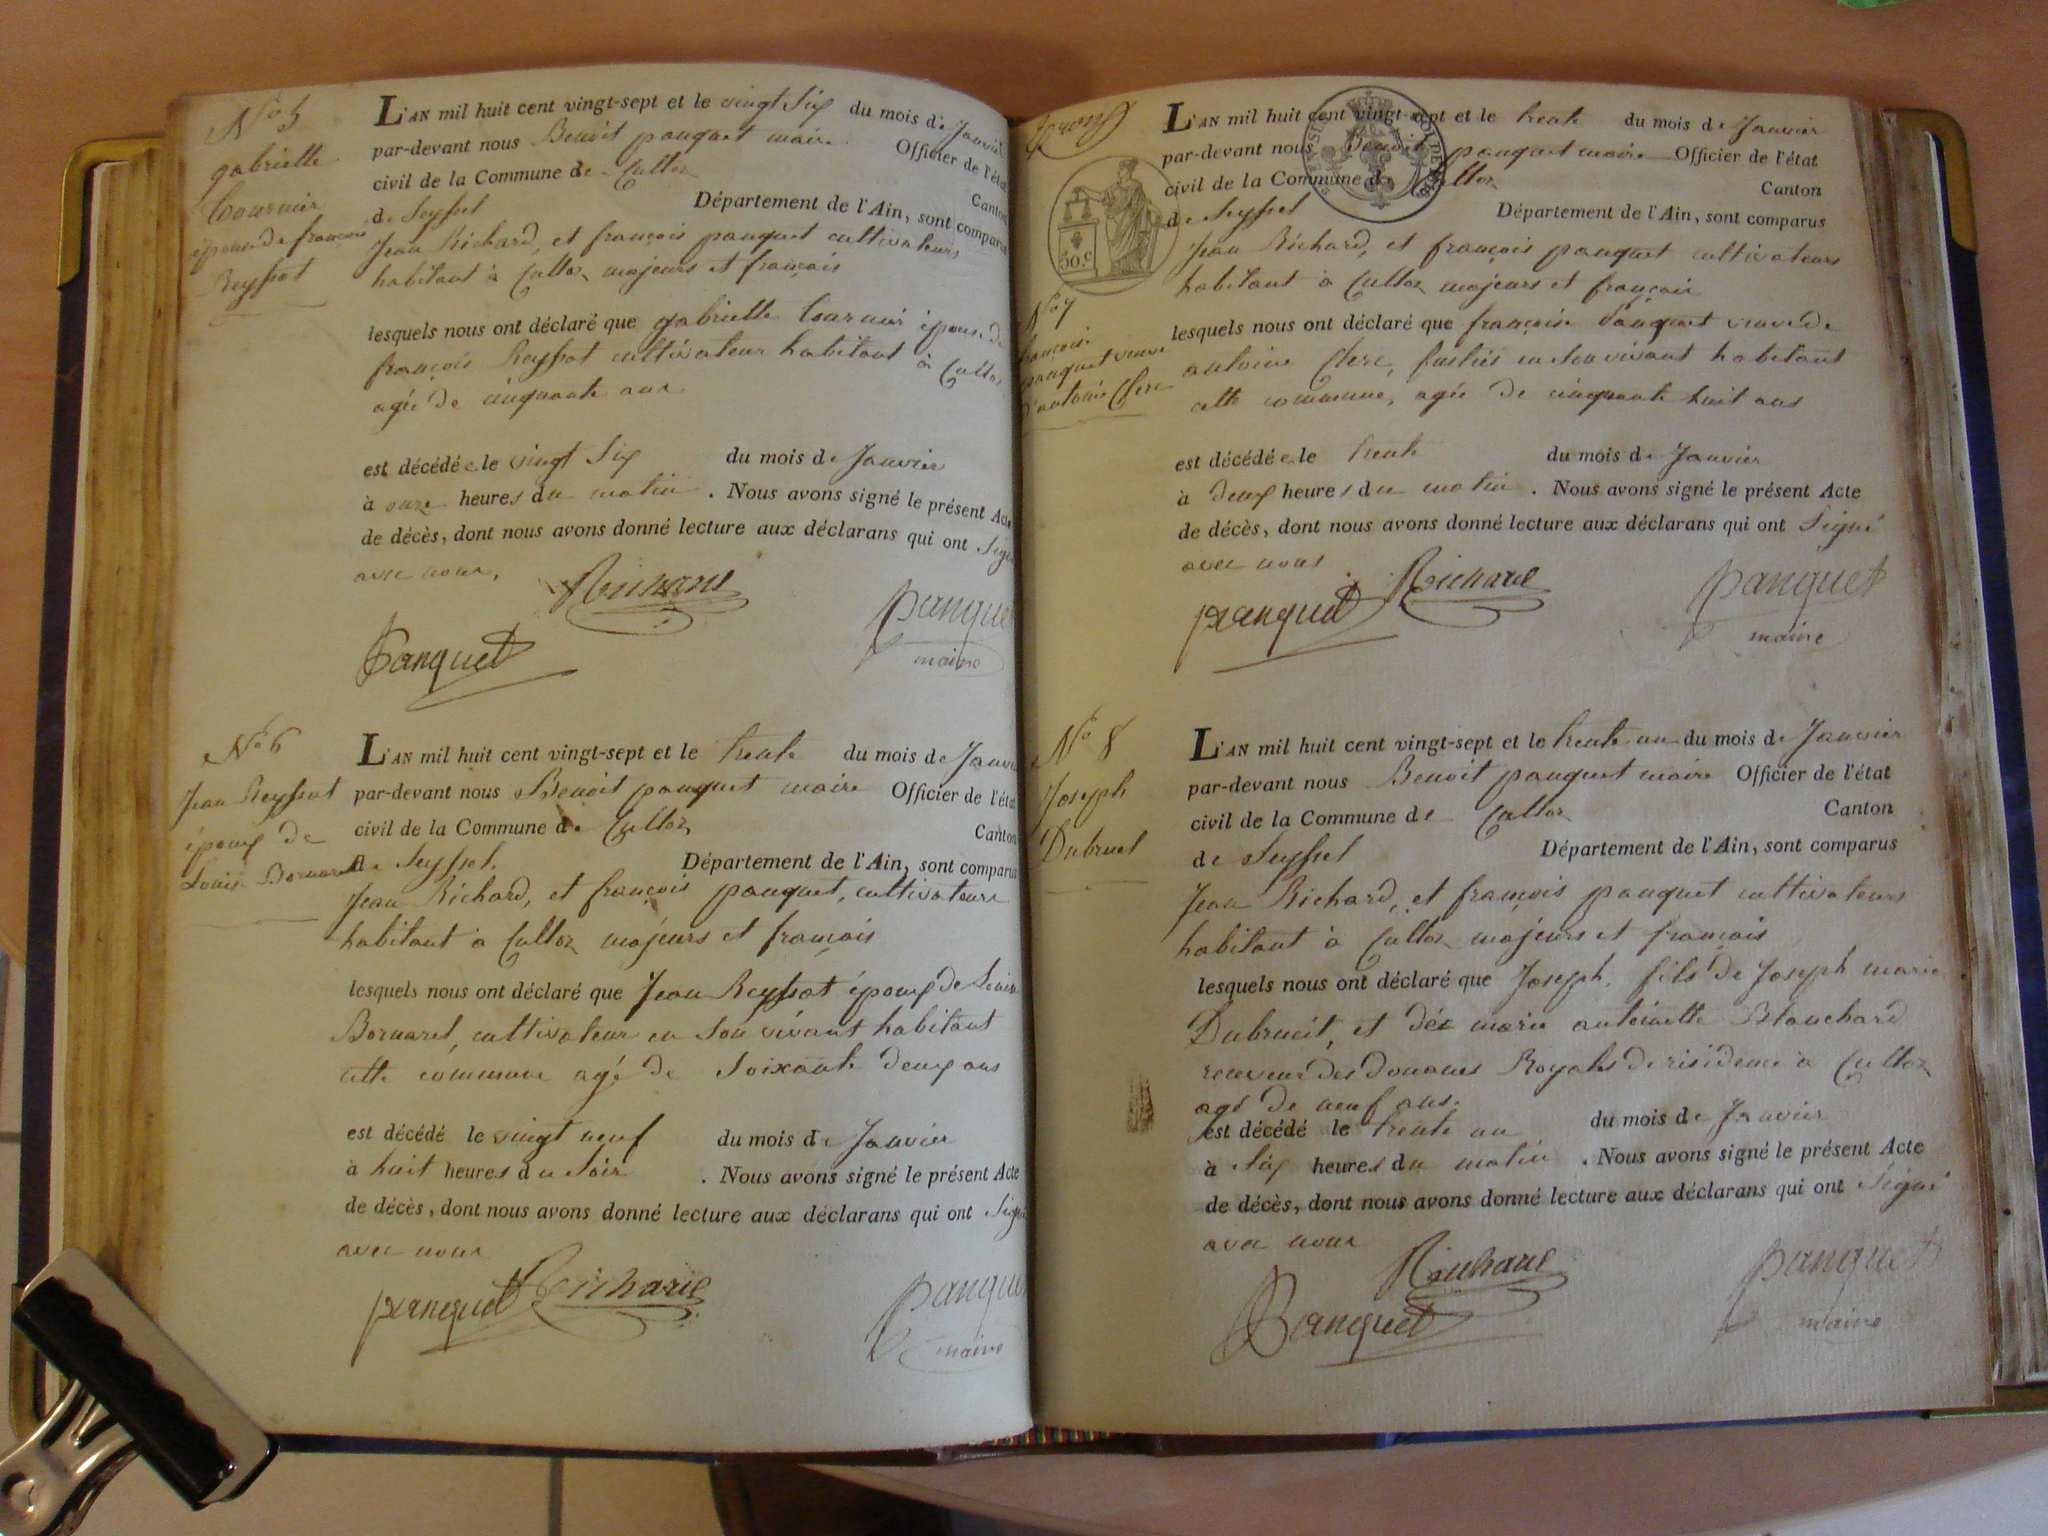 N.o 5
gabrielle
Cournier
épouse de françois
Reyssat
L'AN mil huit cent vingt-sept et le vingt Six du mois de Janvier
par-devant nous Benoit panquet maire Officier de l'état
civil de la Commune de Culloz Canton
de Seyssel Département de l'Ain, sont comparus
Jean Richard, et françois panquet cultivateurs
habitant à Culloz majeurs et français
lesquels nous ont déclaré que gabrielle Cournier épouse de
françois Reyssat cultivateur habitant à Culloz
agée de cinquante ans
est décédée le vingt Six du mois de Janvier
à onze heures du matin . Nous avons signé le présent Acte
de décès, dont nous avons donné lecture aux déclarans qui ont Signé
avec nous,
Richard
panquet
maire
Panquet
N.o 6
Jean Reyssat
époux de
Louise Bornarel
L'AN mil huit cent vingt-sept et le trente du mois de Janvier
par-devant nous Benoit panquet maire Officier de l'état
civil de la Commune de Culloz Canton
de Seyssel. Département de l'Ain, sont comparus
Jean Richard, et françois panquet, cultivateurs
habitant à Culloz majeurs et français
lesquels nous ont déclaré que Jean Reyssat époux de Louise
Bornarel, cultivateur en Son vivant habitant
cette commune agé de Soixante deux ans
est décédé le vingt neuf du mois de Janvier
à huit heures du Soir . Nous avons signé le présent Acte
de décès, dont nous avons donné lecture aux déclarans qui ont Signé
avec nous
panquet Richard
panquet
maire
50.c
N.o 7
françoise
panquet veuve
d'antoine Clerc
L'AN mil huit cent vingt-sept et le trente du mois de Janvier
par-devant nous Benoit panquet maire Officier de l'état
civil de la Commune de Culloz Canton
de Seyssel Département de l'Ain, sont comparus
Jean Richard, et françois panquet cultivateurs
habitant à Culloz majeurs et français
lesquels nous ont déclaré que françoise Panquet veuve de
antoine Clerc, en Son vivant habitant
cette commune, agée de cinquante huit ans
est décédée le trente du mois de Janvier
à deux heures du matin . Nous avons signé le présent Acte
de décès, dont nous avons donné lecture aux déclarans qui ont Signé
avec nous
panquet Richard
panquet
maire
N.o 8
Joseph
Dubruel
L'AN mil huit cent vingt-sept et le trente un du mois de Janvier
par-devant nous Benoit panquet maire Officier de l'état
civil de la Commune de Culloz Canton
de Seyssel Département de l'Ain, sont comparus
Jean Richard, et françois panquet cultivateurs
habitant à Culloz majeurs et français
lesquels nous ont déclaré que Joseph, fils de Joseph marie
Dubrueil, et de marie antoinette Blanchard
receveur des douanes Royales de résidence à Culloz
agé de neuf ans.
est décédé le trente un du mois de Janvier
à Six heures du matin . Nous avons signé le présent Acte
de décès, dont nous avons donné lecture aux déclarans qui ont Signé
avec nous
Richard
Panquet
panquet
maire